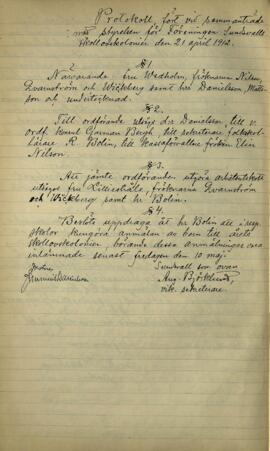 Protokoll, fört vid sammanträde
med styrelsen för Föreningen Sundsvalls
skollovskolonier den 21 april 1912.
§1.
Närvarande: fru Wedholm, fröknarna Nilson,
Qvarnström och Wickberg samt hrr Danielsson, Matts-
son och undertecknad.
§2.
Till ordförande utsågs dr Danielson, till v.
ordf. Konst German Bergh, till sekreterare folkskol-
lärare R. Bolin, till kassaförvaltare fröken Elin
Nilson.
§3.
Att jämte ordföranden utgöra arbetsutskott
utsågs fru Lilliesthåle, fröknarna Qvarnström
och Wickberg samt hr Bolin.
§4.
Beslöts uppdraga åt hr Bolin att i resp.
skolor kungöra anmälan av barn till årets
skollovskolonien, börande dessa anmälningar vara
inlämnade senast fredagen den 10 maj.
Justeras:
Sundsvall som ovan
Aug. Björklund,
vik. sekreterare.